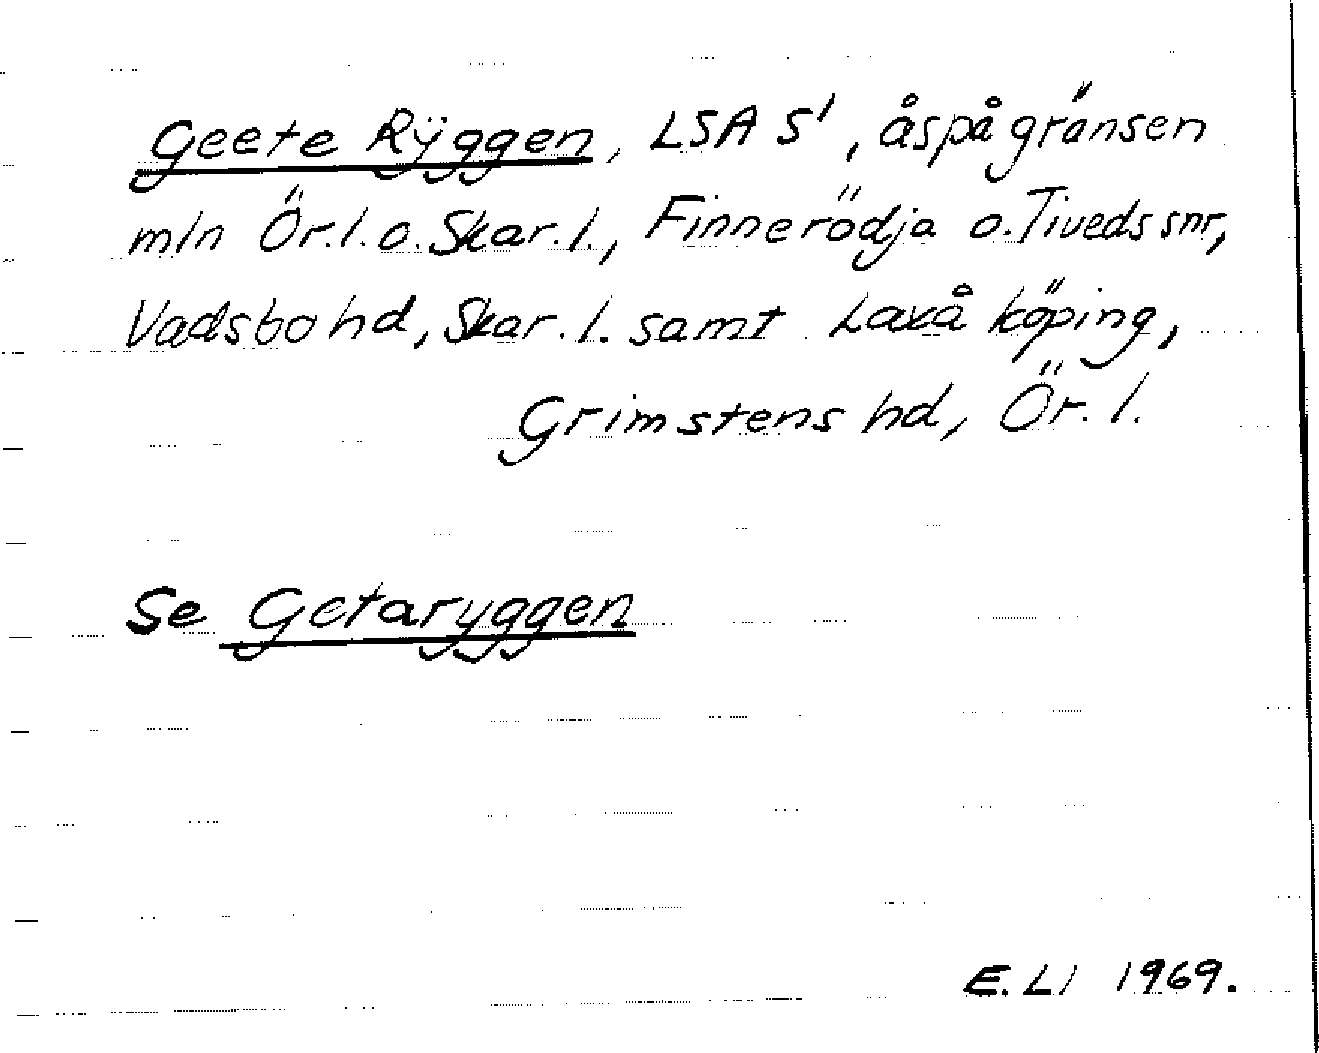 Geete Rÿggen, LSA S', ås på gränsen
mln Ör.l. o. Skar.l., Finnerödja o. Tiveds snr,
Vadsbo hd, Skar.l. samt Laxå köping,
Grimstens hd, Ör.l.
Se Getaryggen
E. LI 1969.